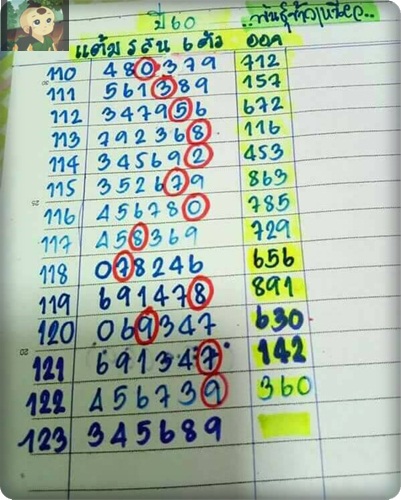 ปี 60
แต้มรสิน 6 ตัว ออก
110 480379 712
111 561389 157
112 347956 672
113 792368 116
114 345692 453
115 352679 863
116 456780 785
117 458369 729
118 078246 656
119 691478 891
120 069347 630
121 691347 142
122 456739 360
123 345689